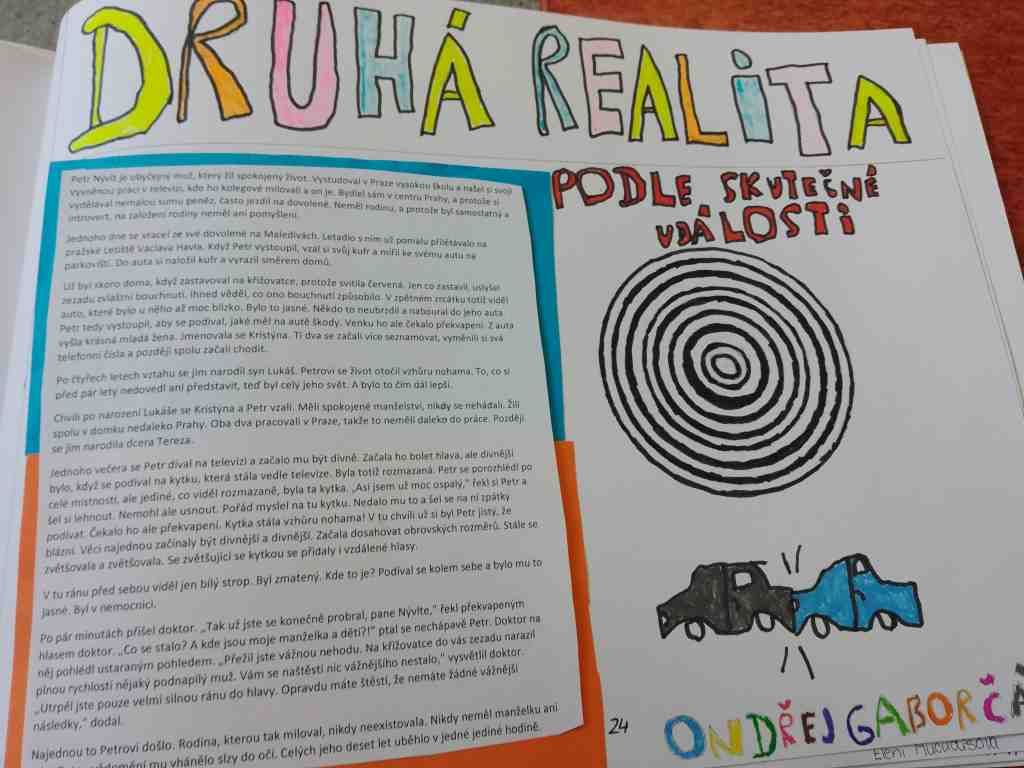 DRUHÁ REALITA
Petr Nývlt je obyčejný muž, který žil spokojený život. Vystudoval v Praze vysokou školu a našel si svoji
vysněnou práci v televizi, kde ho kolegové milovali a on je. Bydlel sám v centru Prahy, a protože si
vydělával nemalou sumu peněz, často jezdil na dovolené. Neměl rodinu, a protože byl samostatný a
introvert, na založení rodiny neměl ani pomyšlení.
Jednoho dne se vracel ze své dovolené na Maledivách. Letadlo s ním už pomalu přilétávalo na
pražské Letiště Václava Havla. Když Petr vystoupil, vzal si svůj kufr a mířil ke svému autu na
parkovišti. Do auta si naložil kufr a vyrazil směrem domů.
Už byl skoro doma, když zastavoval na křižovatce, protože svítila červená. Jen co zastavil, uslyšel
zezadu zvláštní bouchnutí. Ihned věděl, co ono bouchnutí způsobilo. V zpětném zrcátku totiž viděl
auto, které bylo u něho až moc blízko. Bylo to jasné. Někdo to neubrzdil a naboural do jeho auta.
Petr tedy vystoupil, aby se podíval, jaké měl na autě škody. Venku ho ale čekalo překvapení. Z auta
vyšla krásná mladá žena. Jmenovala se Kristýna. Ti dva se začali více seznamovat, vyměnili si svá
telefonní čísla a později spolu začali chodit.
Po čtyřech letech vztahu se jim narodil syn Lukáš. Petrovi se život otočil vzhůru nohama. To, co si
před pár lety nedovedl ani představit, teď byl celý jeho svět. A bylo to čím dál lepší.
Chvíli po narození Lukáše se Kristýna a Petr vzali. Měli spokojené manželství, nikdy se nehádali. Žili
spolu v domku nedaleko Prahy. Oba dva pracovali v Praze, takže to neměli daleko do práce. Později
se jim narodila dcera Tereza.
Jednoho večera se Petr díval na televizi a začalo mu být divně. Začala ho bolet hlava, ale divnější
bylo, když se podíval na kytku, která stála vedle televize. Byla totiž rozmazaná. Petr se porozhlédl po
celé místnosti, ale jediné, co viděl rozmazaně, byla ta kytka. „Asi jsem už moc ospalý,“ řekl si Petr a
šel si lehnout. Nemohl ale usnout. Pořád myslel na tu kytku. Nedalo mu to a šel se na ni zpátky
podívat. Čekalo ho ale překvapení. Kytka stála vzhůru nohama! V tu chvíli už si byl Petr jistý, že
blázní. Věci najednou začínaly být divnější a divnější. Začala dosahovat obrovských rozměrů. Stále se
zvětšovala a zvětšovala. Se zvětšující se kytkou se přidaly i vzdálené hlasy.
V tu ránu před sebou viděl jen bílý strop. Byl zmatený. Kde to je? Podíval se kolem sebe a bylo mu to
jasné. Byl v nemocnici.
Po pár minutách přišel doktor. „Tak už jste se konečně probral, pane Nývlte,“ řekl překvapeným
hlasem doktor. „Co se stalo? A kde jsou moje manželka a děti?!“ ptal se nechápavě Petr. Doktor na
něj pohlédl ustaraným pohledem. „Přežil jste vážnou nehodu. Na křižovatce do vás zezadu narazil
plnou rychlostí nějaký podnapilý muž. Vám se naštěstí nic vážnějšího nestalo,“ vysvětlil doktor.
„Utrpěl jste pouze velmi silnou ránu do hlavy. Opravdu máte štěstí, že nemáte žádné vážnější
následky,“ dodal.
Najednou to Petrovi došlo. Rodina, kterou tak miloval, nikdy neexistovala. Nikdy neměl manželku ani
mu vhánělo slzy do očí. Celých jeho deset let uběhlo v jedné jediné hodině.
PODLE SKUTEČNÉ
UDÁLOSTI
24
ONDŘEJ GABORČÁ
Eleni